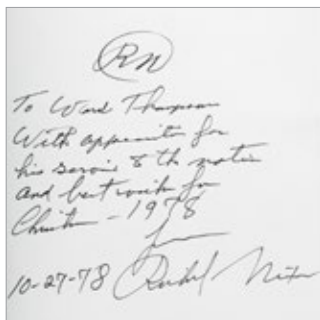 RN
To Ward Thompson
With appreciation for
his service to the nation
and best wishes for
Christmas - 1978
from
10-27-78 Richard Nixon